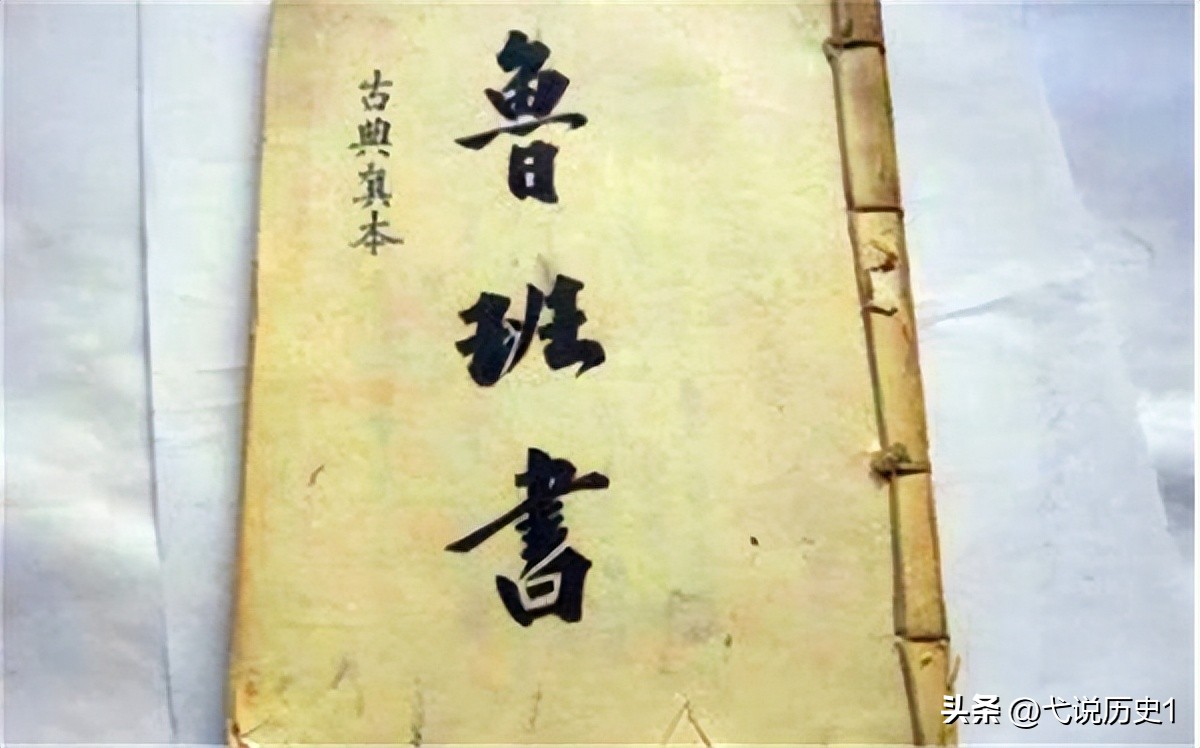 魯班書
古典真本
头条 @弋说历史1